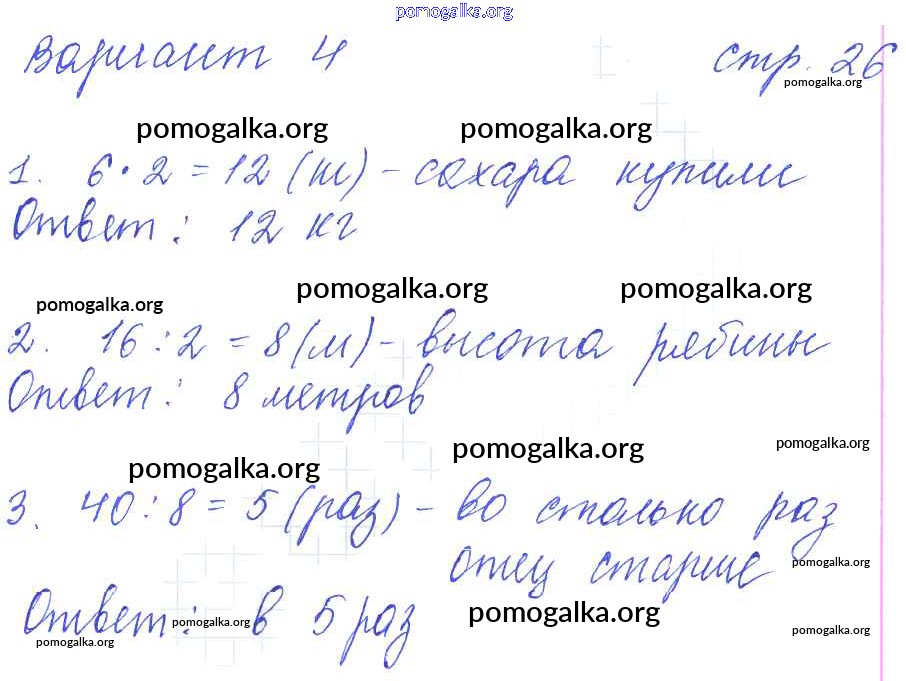 pomogalka.org
Вариант 4 стр. 26
pomogalka.org
pomogalka.org pomogalka.org
1. 6 · 2 = 12 (кг) - сахара купили
Ответ: 12 кг
pomogalka.org pomogalka.org pomogalka.org
2. 16 : 2 = 8 (м) - высота рябины
Ответ: 8 метров
pomogalka.org pomogalka.org pomogalka.org
3. 40 : 8 = 5 (раз) - во столько раз
отец старше
pomogalka.org
Ответ: в 5 раз
pomogalka.org pomogalka.org pomogalka.org
pomogalka.org